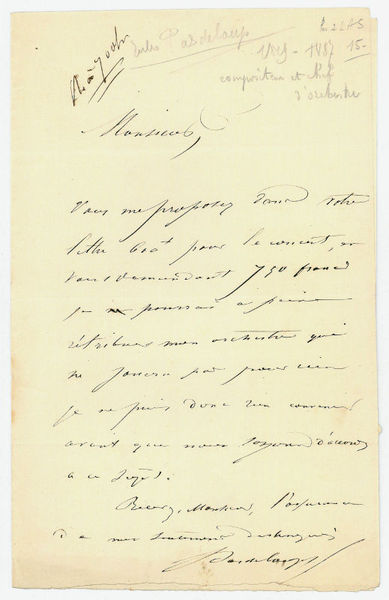 Jules Pasdeloup
1819 - 1887
15-
compositeur et chef
d'orchestre
Monsieur,
Vous me proposez dans votre
lettre 600f pour le concert, en
vous demandant 750 francs
je pourrais à peine
rétribuer mon orchestre qui
ne jouera pas pour rien
je ne puis donc rien convenir
avant que nous soyons d'accord
a ce sujet.
Recevez, Monsieur, l'assurance
de mes sentiments distingués
Pasdeloup